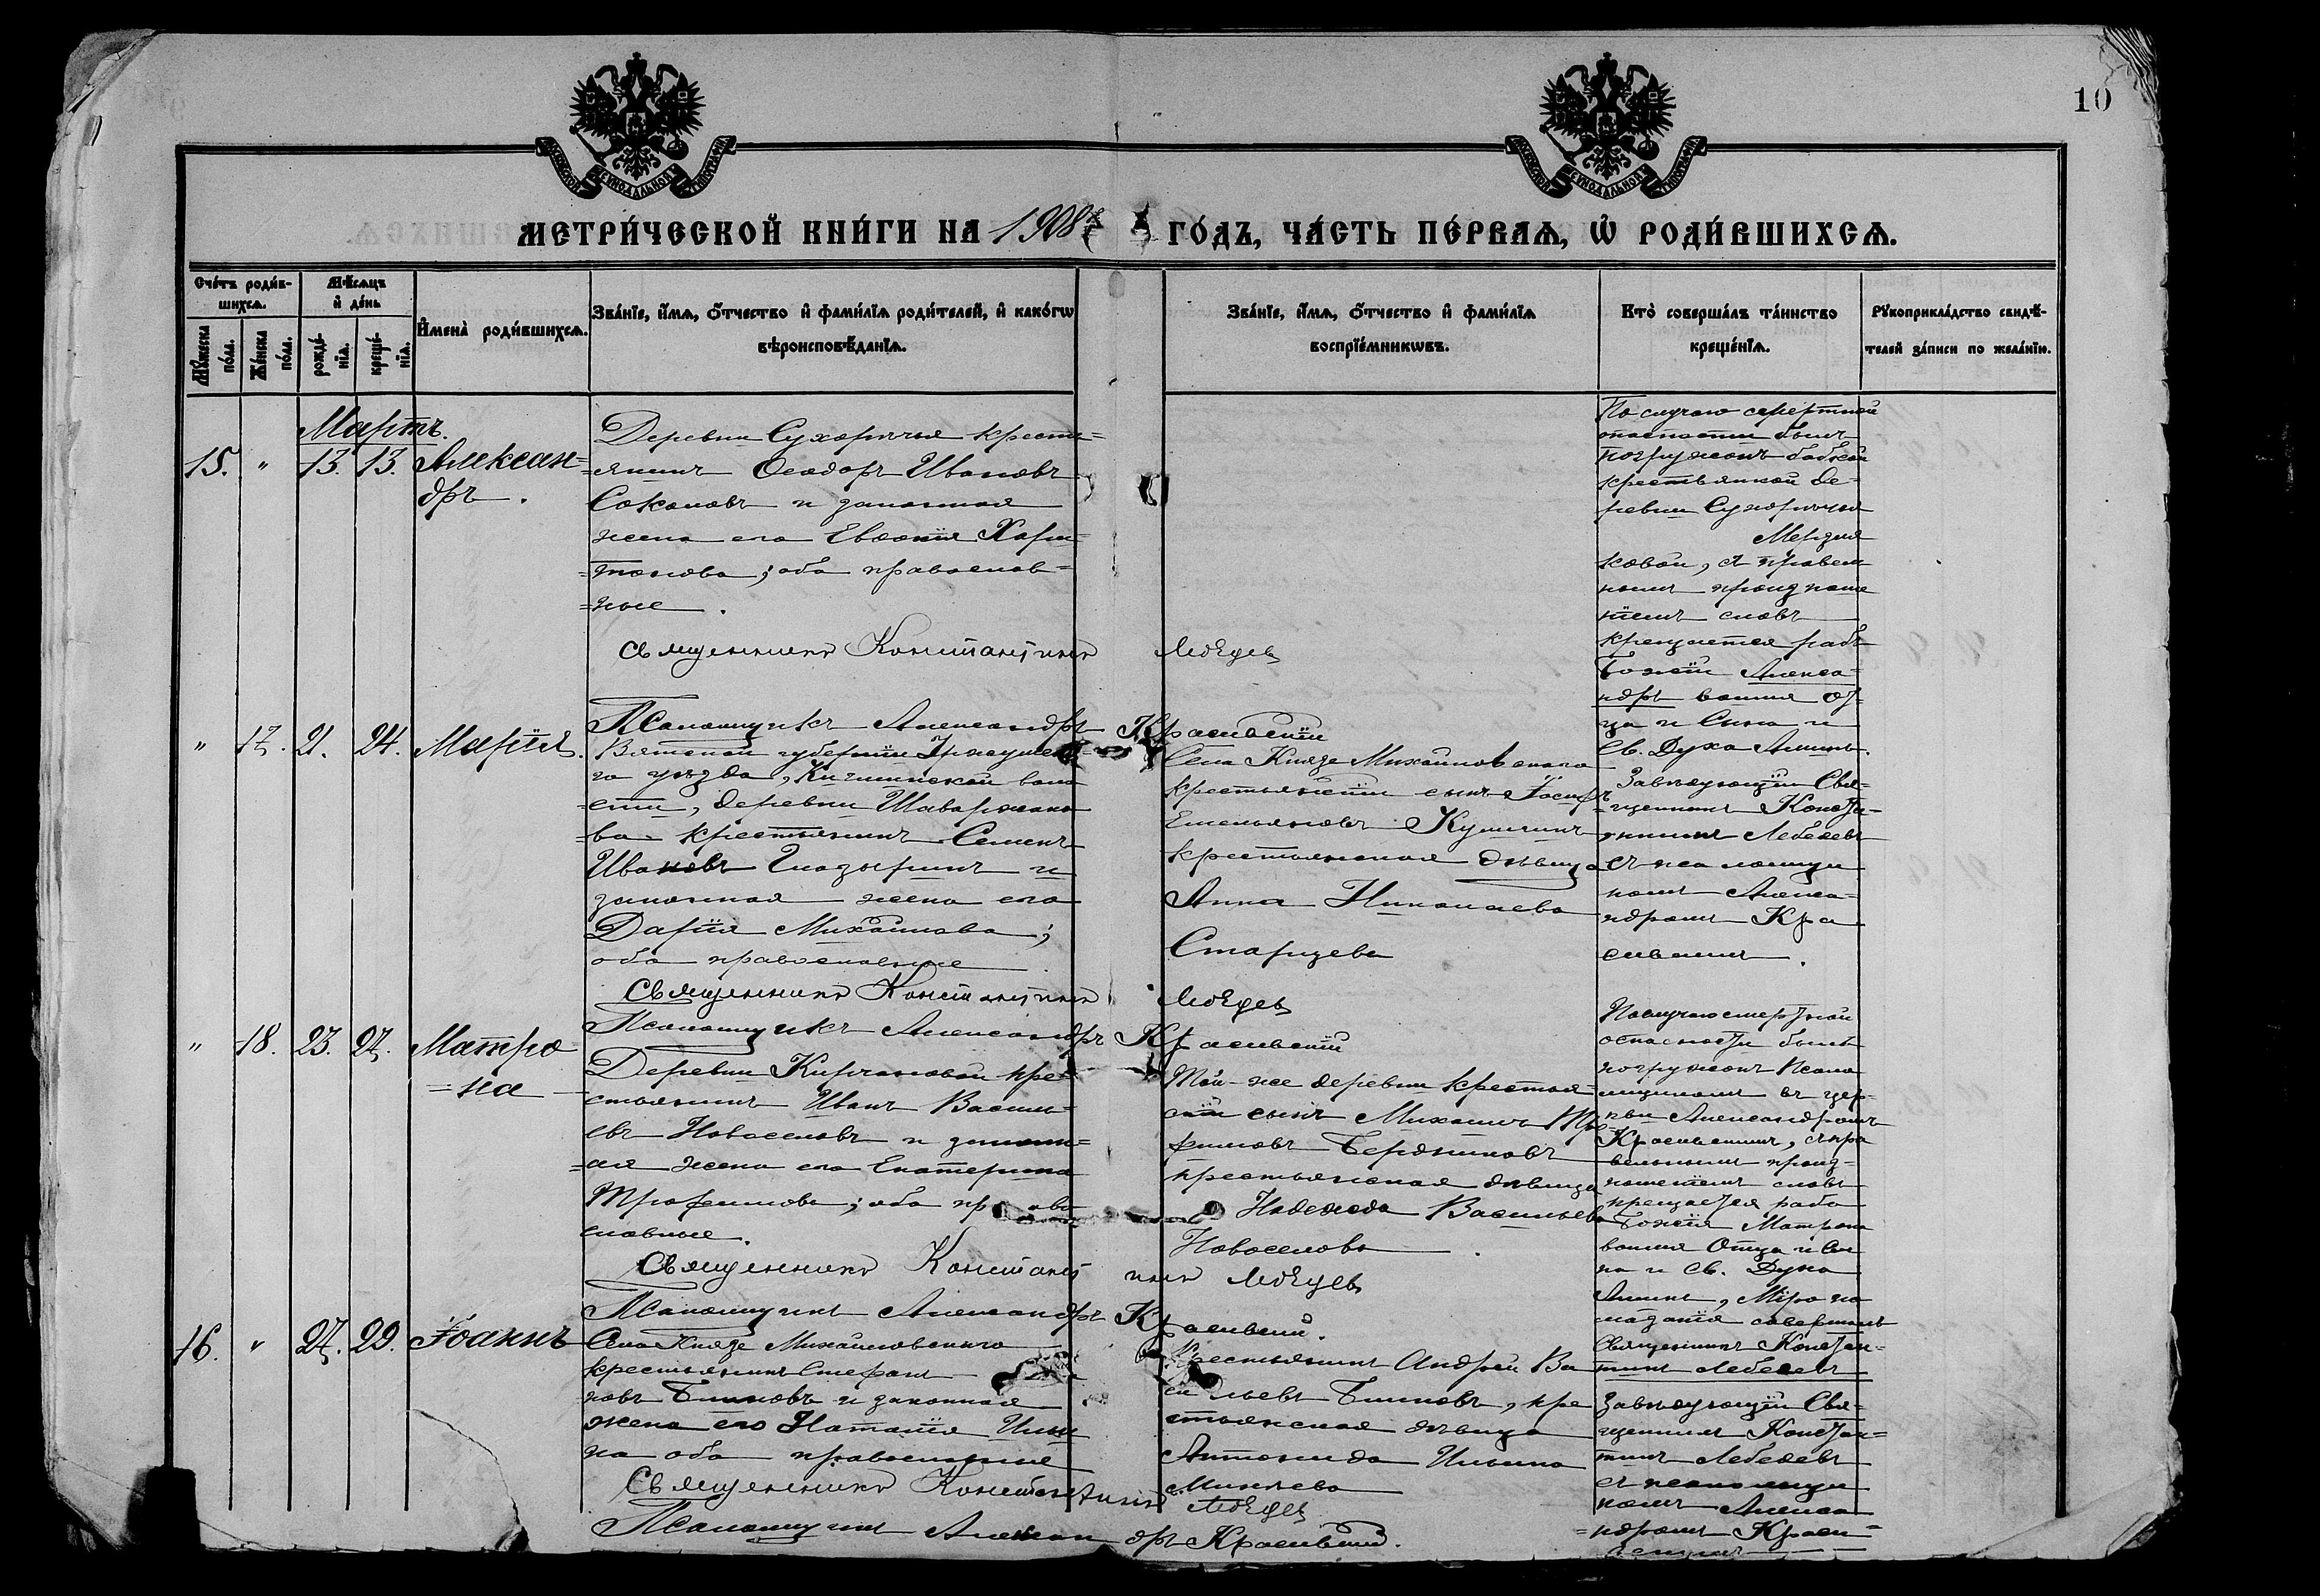 10
МОСКОВСКОЙ СѴНОДАЛЬНОЙ ТИПОГРАФІИ
МОСКОВСКОЙ СѴНОДАЛЬНОЙ ТИПОГРАФІИ
МЕТРИ́ЧЕСКОЙ КНИ́ГИ НА 1908 ГО́ДЪ, ЧА́СТЬ ПЕ́РВАѦ, Ѡ҆ РОДИ́ВШИХСѦ.
Сче́тъ роди́в-
шихсѧ.
Мꙋ́жеска по́ла.
Же́нска по́ла.
Мѣ́сѧцъ
и҆ де́нь
рожде́-
нїѧ.
креще́-
нїѧ.
И҆мена̀ роди́вшихсѧ.
Зва́нїе, и҆́мѧ, ѻ҆́тчество и҆ фами́лїѧ роди́телей, и҆ како́гѡ
вѣроисповѣ́данїѧ.
Зва́нїе, и҆́мѧ, ѻ҆́тчество и҆ фами́лїѧ
воспрїе́мникѡвъ.
Кто̀ соверша́лъ та́инство
креще́нїѧ.
Рꙋкоприкла́дство свидѣ́-
телей за́писи по жела́нїю.
Мартъ.
15. " 13. 13. Алексан=
дръ.
Деревни Сухоречья кресть=
=янинъ Ѳеодоръ Ивановъ
Соколовъ и законная
жена его Евдокія Хари=
=тонова; оба православ=
=ные.
Священникъ Константинъ Лебедев
Псаломщикъ Александръ Красивскій
По случаю смертной
опасности былъ
погружонъ бабкой
крестьянкой де=
ревни Сухоречья
ковой, съ правиль
нымъ произноше
ніемъ словъ
крещается рабъ
Божій Алекса=
ндръ во имя От=
ца и Сына и
Св. Духа Аминь.
" 17. 21. 24. Марія.
Вятской губерніи
го уѣзда, воло
=сти, деревни
=ва крестьянинъ Семенъ
Ивановъ Глазыринъ и
законная жена его
Дарія Михайлова;
оба православные
Священникъ Константинъ Лебедев
Псаломщикъ Александръ Красивскій
Села Князе Михайловскаго
крестьянскій сынъ Іосифъ
Емельяновъ
крестьянская дѣвица
Анна Николаева
Старцева
Завѣдующій Свя=
=щенникъ Конста=
нтинъ Лебедевъ
съ псаломщи
комъ Алекса=
ндромъ Кра
сивскимъ.
" 18. 23. 24. Матро=
=на
Деревни кре=
стьянинъ Иванъ Василь=
евъ Новоселовъ и законн=
=ая жена его Екатерина
Трофимова; оба право
славные.
Священникъ Константинъ Лебедев
Псаломщикъ Александръ Красивскій.
Той-же деревни крестьян=
скій сынъ Михаилъ Тро=
фимовъ Бердниковъ
крестьянская дѣвица
Надежда Васильева
Новоселова.
По случаю смертной
опасности былъ
погружонъ Псало
мщикомъ въ цер=
кви Александромъ
Красивскимъ, съ пра
вильнымъ произ=
ношеніемъ словъ
крещается раба
Божія Матрона
во имя Отца и Сы
на и Св. Духа
Аминь, Миропо
мазаніе совершилъ
Священникъ Констан=
тинъ Лебедевъ
16. " 27. 29. Іоаннъ
Села Князе Михайловскаго
крестьянинъ Стефанъ
новъ Блиновъ и законная
жена его Наталія Ильи
на оба православные
Священникъ Константинъ Лебедев
Псаломщикъ Александръ Красивскій.
Крестьянинъ Андрей Ва
сильевъ Блиновъ, кре
стьянская дѣвица
Антонида Ильина
Завѣдующій Свя=
щенникъ Констан=
тинъ Лебедевъ
съ псаломщи
комъ Алекса
=ндромъ Краси=
вскимъ